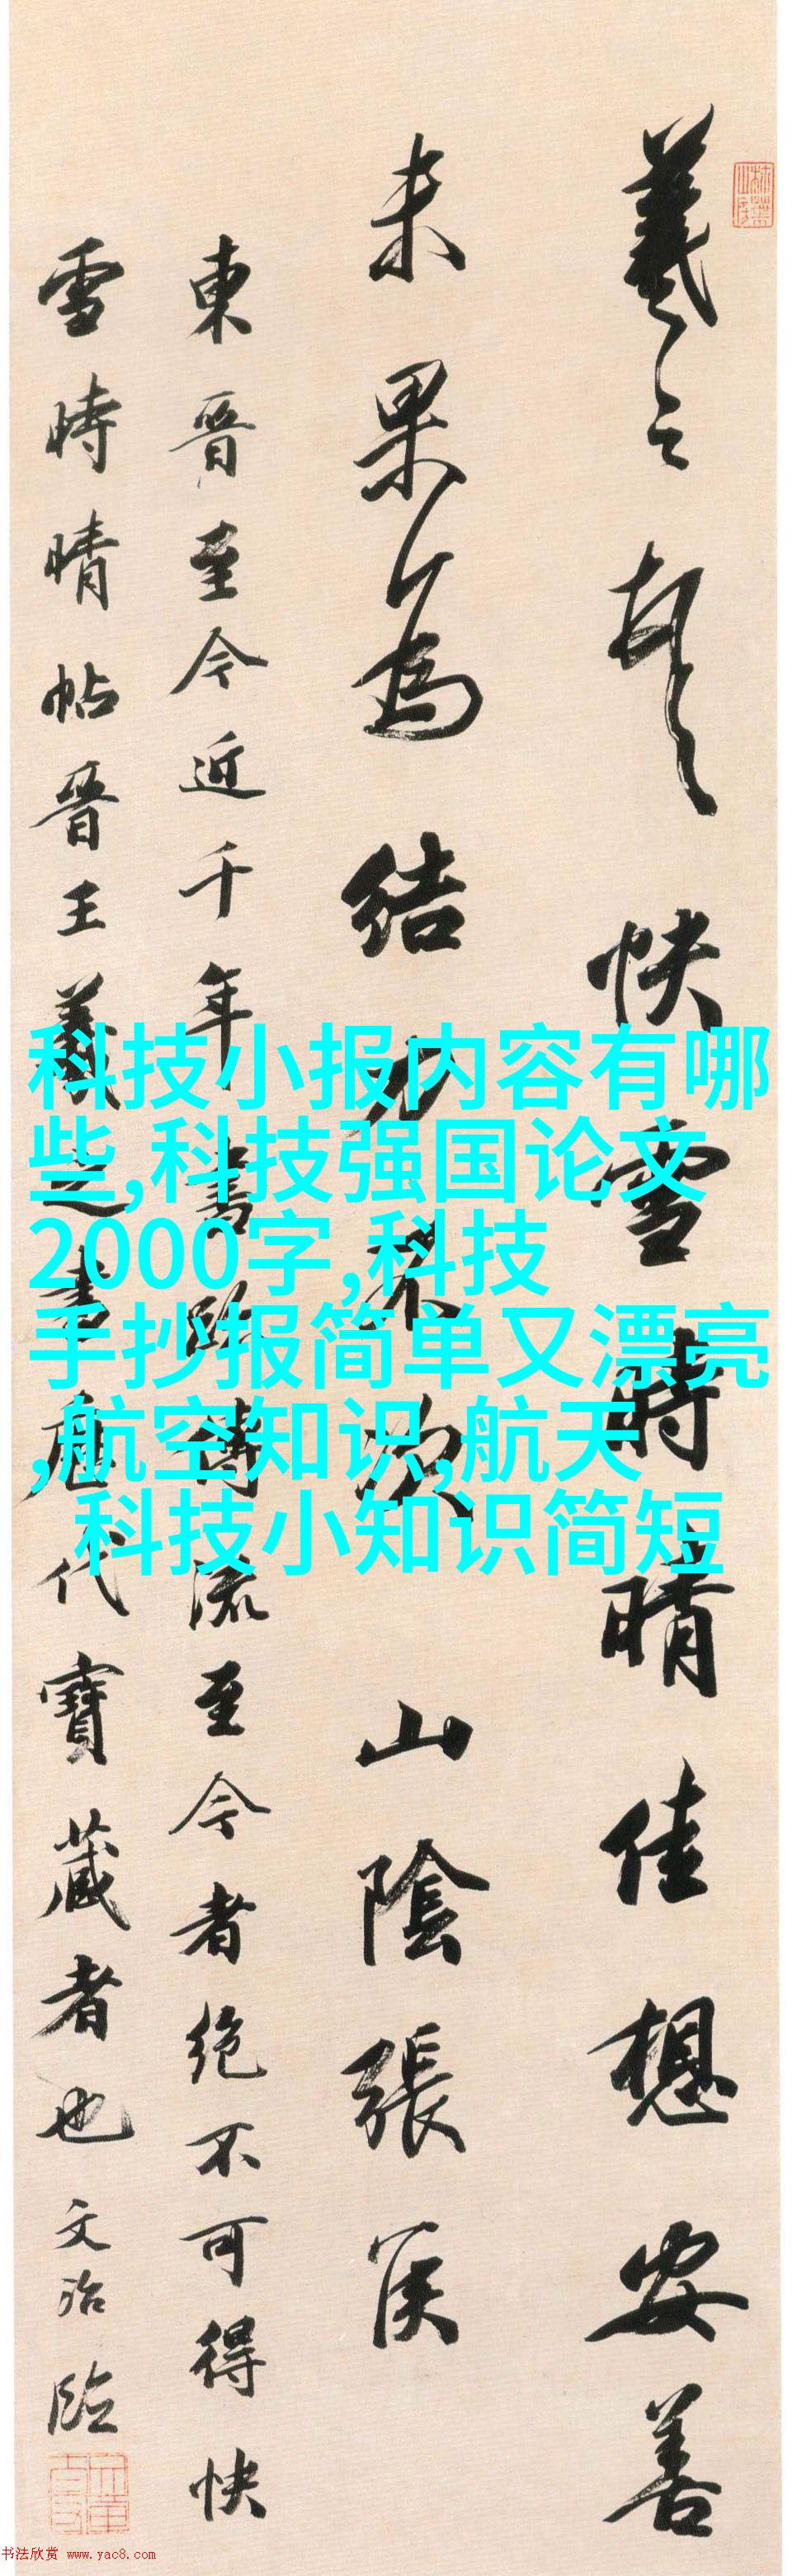 羲之頓首快雪時晴佳想安善
未果為結力不次 山陰張侯
東晉至今近千年書跡傳流至今者絶不可得快
雪時晴帖晉王羲之書歷代寶藏者也文治臨
科技小报内容有哪
些,科技强国论文
2000字,科技
手抄报简单又漂亮
,航空知识,航天
,科技小知识简短
书法欣赏 www.yac8.com